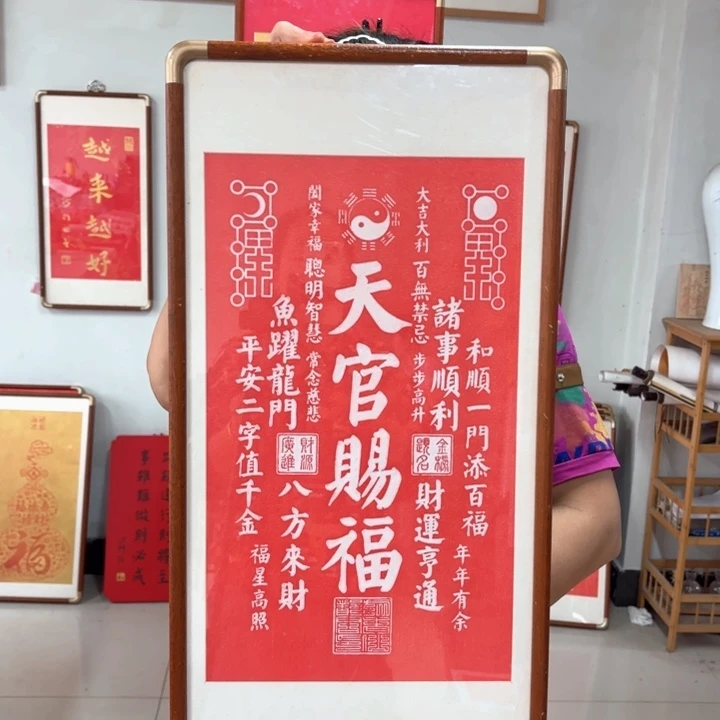 天官賜福
大吉大利
百無禁忌
步步高升
諸事順利
金榜題名
財運亨通
和順一門添百福
年年有余
闔家幸福
聰明智慧
常念慈悲
魚躍龍門
財源廣進
八方來財
平安二字值千金
福星高照
越来越好
福